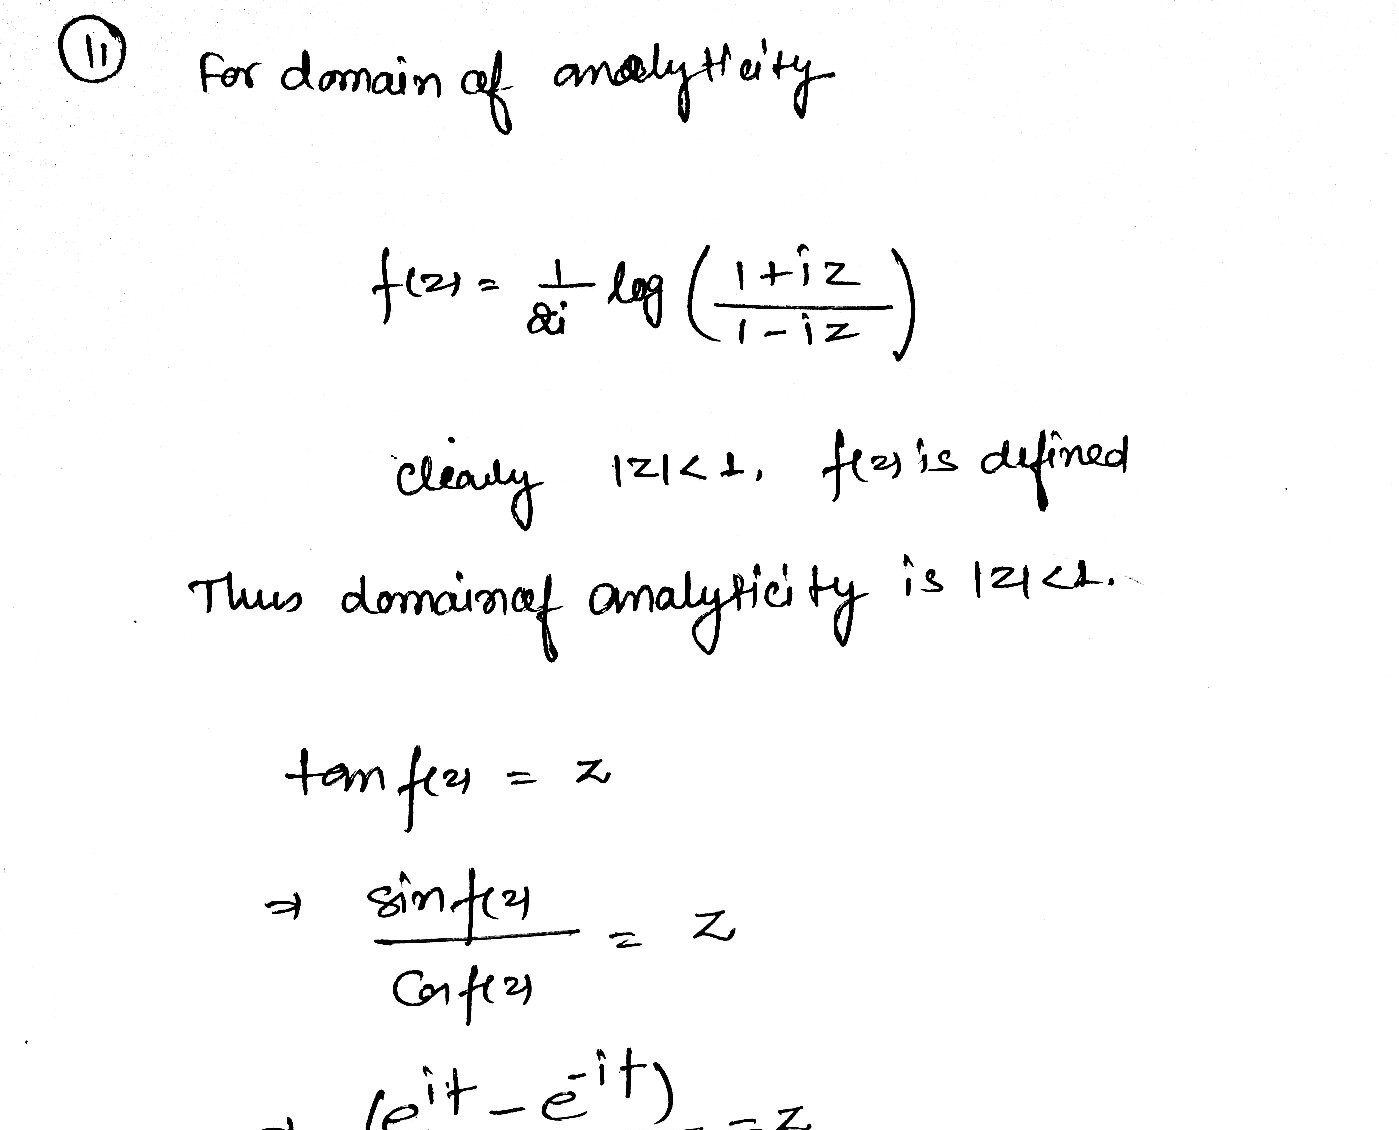 11 For domain of analyticity
f(z) = 1/2i log ( 1+iz / 1-iz )
clearly |z|<1, f(z) is defined
Thus domain of analyticity is |z|<1.
tan f(z) = z
⇒ sin f(z) / cos f(z) = z
⇒ (e^it - e^-it) = z